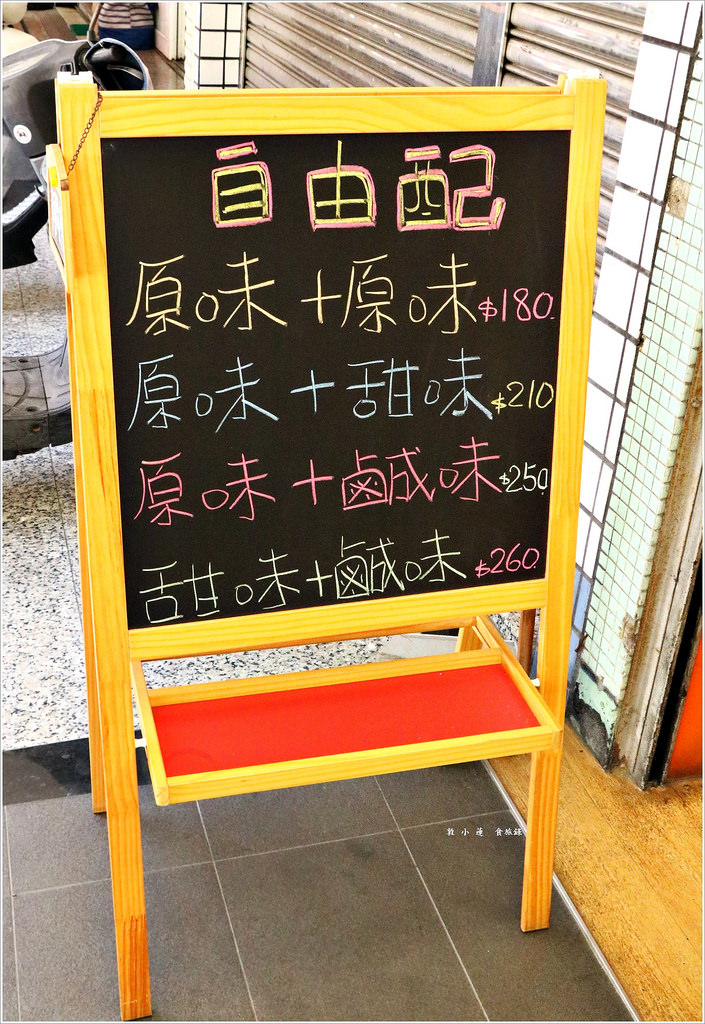 自由配
原味+原味$180.
原味+甜味$210
原味+鹹味$250.
甜味+鹹味$260.
敦小蓮 食旅錄